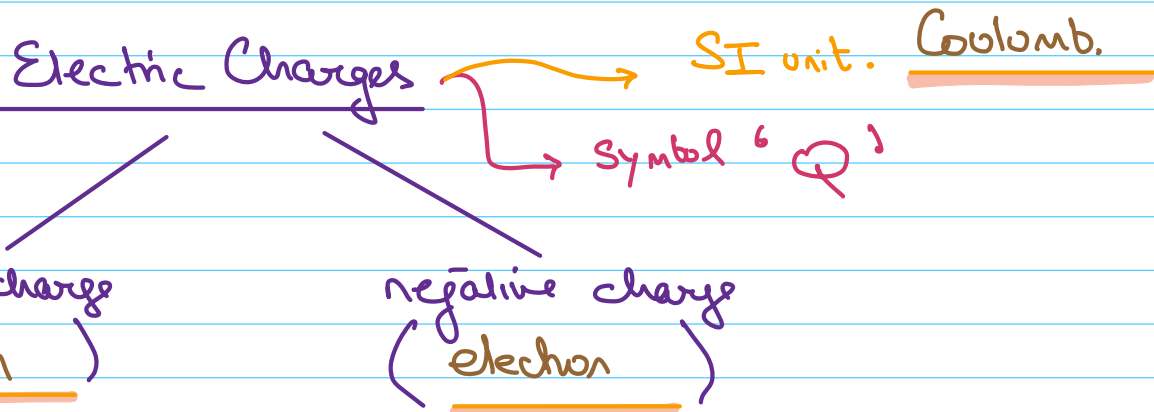 Electric Charges SI unit. Coulomb.
Symbol ‘Q’
charge negative charge
( electron )